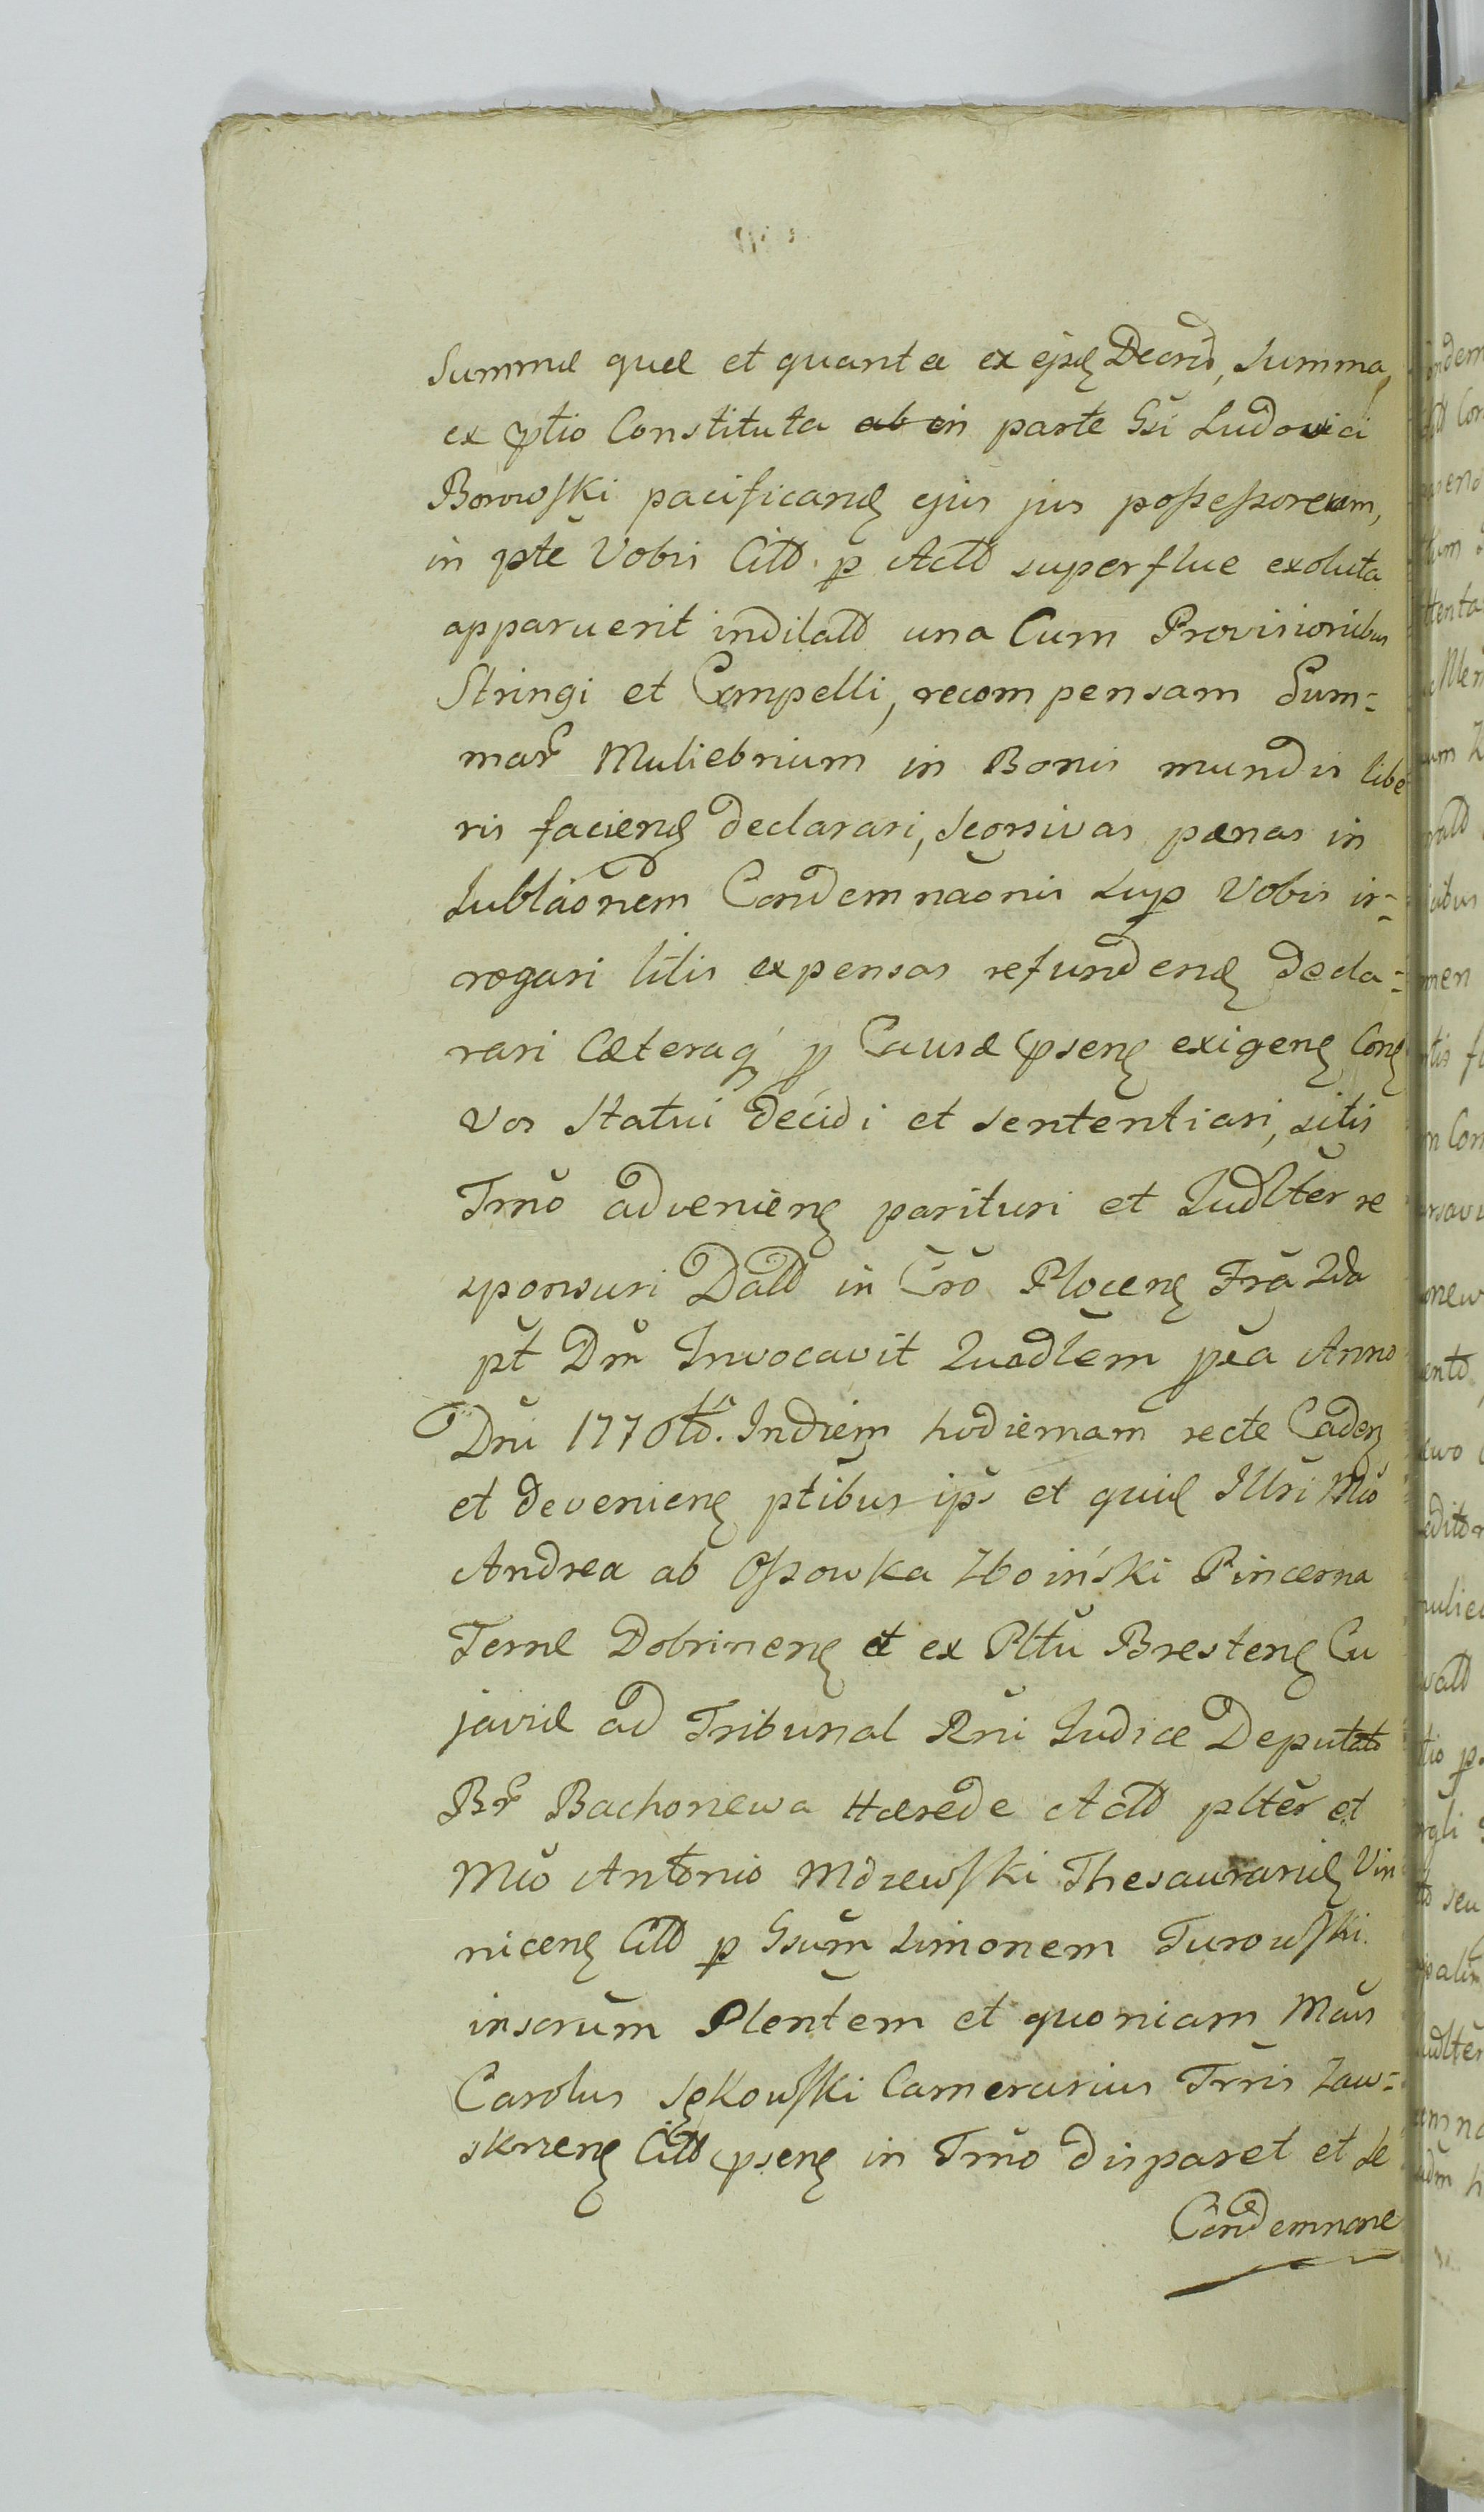 Summæ quæ et quanta ex ejsd Decrto, Summa
ex ptio Constituta ab in parte Gsi Ludovici
Borowski pacificand ejus jus possessoreum,
in pte Vobis Citto p Actto superflue exoluta
apparuerit indilatto una Cum Provisionibus
Stringi et Compelli, recompensam Sum-
mar Muliebrium in Bonis mundis libe
ris faciend declarari, scorsivas pænas in
Sublaõnem Condemnaõnis Sup Vobis ir-
rogari litis expensas refundend decla-
rari Cæteraq p Causæ psens exigens Cons
vos Statui decidi et sententiari, sitis
Trno adveniens parituri et Judlter re
sponsuri Datto in Cro Plocens Fra 2da
pt Dm Invocavit Quadlem pxa Anno
Dni 1770tto. In diem hodiernam recte Cadens
et deveniens ptibus ips et quid Illsi Mco
Andrea ab Ossowka Zboiński Pincerna
Terræ Dobrinens et ex Plttu Brestens Cu
javiæ ad Tribunal Rni Iudice Deputato
Br Bachorzewa Hærede Actto plter et
Mco Antonio Mdzewski Thesaurarid Vin
nicens Citto p Gsum Simonem Turowski
inscrum Plentem et quoniam Mcus
Carolus Sękowski Camerarius Trris Zaw-
skrzens Citto psens in Trno disparet et se
Condemnare